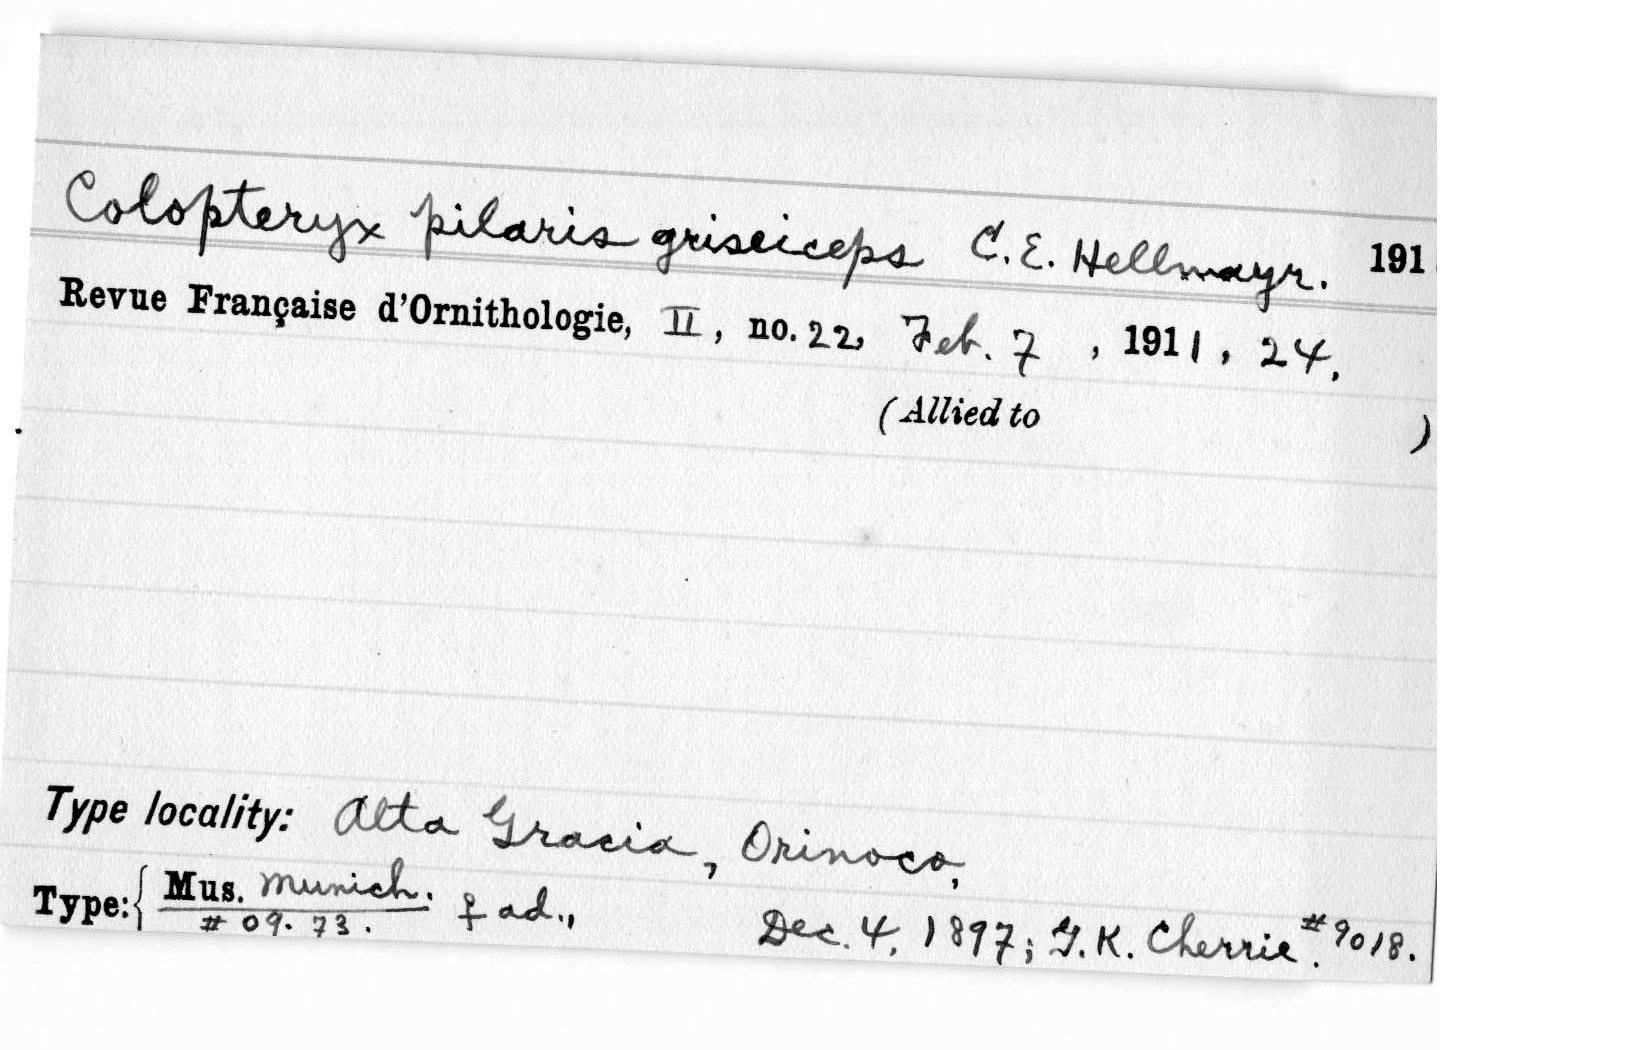 Colopteryx pilaris griseiceps C. E. Hellmayr. 191
Revue Française d'Ornithologie, II, no. 22, Feb. 7, 1911, 24.
(Allied to )
Type locality: Alta Gracia, Orinoco,
Type: { Mus. Munich. ♀ ad., Dec. 4, 1897; G. K. Cherrie. #9018.
# 09. 73.